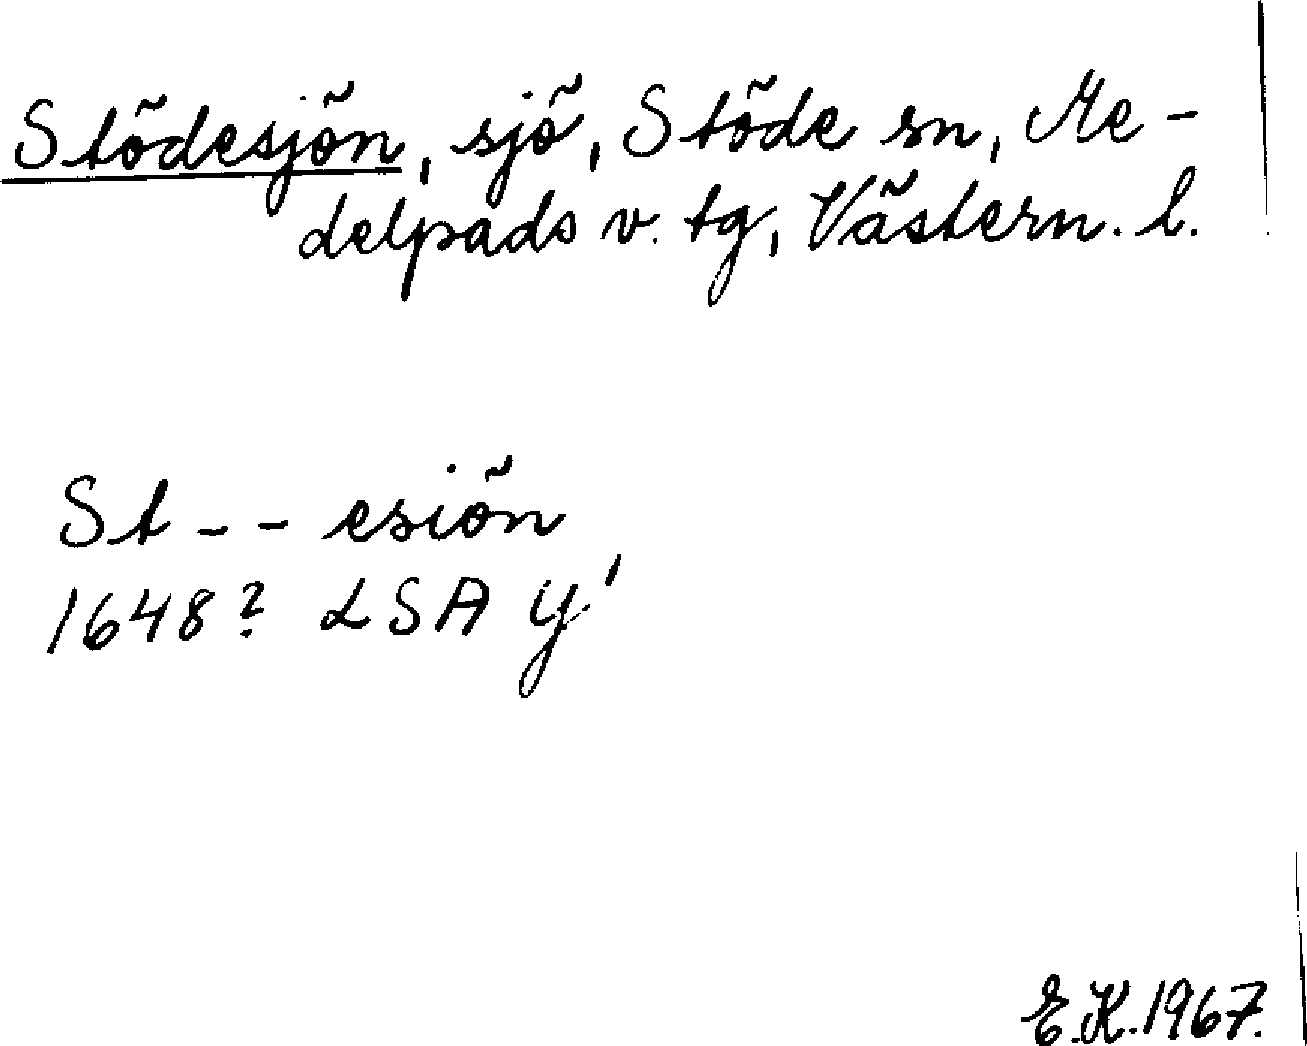 Stödesjön, sjö, Stöde sn, Me-
delpads v. tg, Västern. l.
St - - esiön
1648? LSA Y'
E.K. 1967.